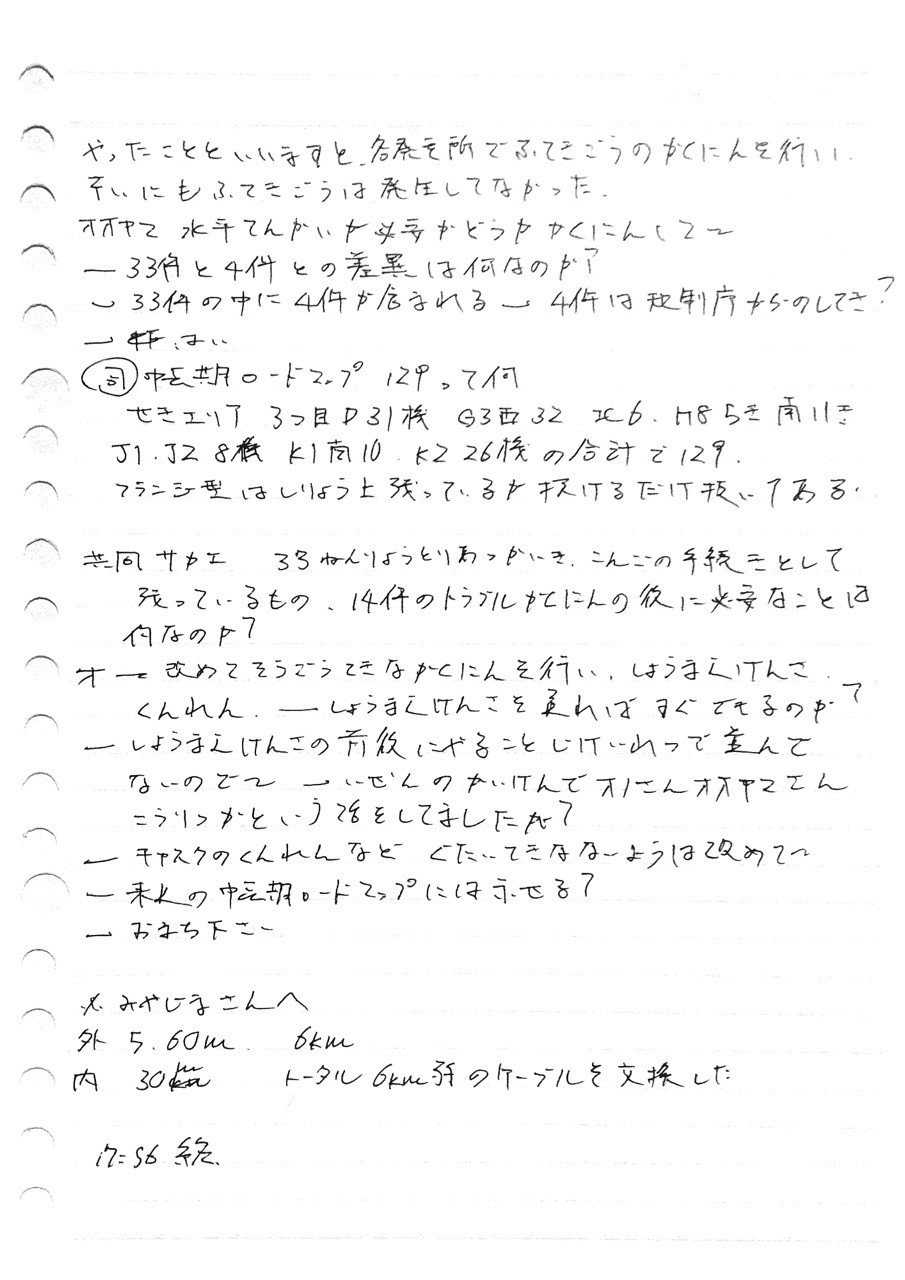 やったことといいますと、各発電所でふてきごうのかくにんを行い、
にもふてきごうは発生してなかった.
オオヤマ 水平てんかいが必要かどうか かくにんして〜
― 33件と4件との差異は何なのか?
― 33件の中に4件が含まれる ― 4件は規制庁からのしてき?
― はい
㊂ 中長期ロードマップ 129って何
せきエリア 3つ目 D 31機 G3西32 北6. H8 5き 南11き
J1.J2 8機 K1南10 K2 26機の合計で129.
フランジ型はしりょう上残っているが抜けるだけ抜いてある.
共同 サカエ 3号ねんりょうとりあつかいき.こんごの手続きとして
残っているもの、14件のトラブルかくにんの後に必要なことは
何なのか?
オ ― 改めてそうごうてきなかくにんを行い、しようまえけんさ.
くんれん. ― しようまえけんさを取ればすぐできるのか?
― しようまえけんさの前後にやること じけいれつで並んで
ないので〜 ― いぜんのかいけんでオノさんオオヤマさん
こうりつかという話をしてましたが?
― キャスクのくんれんなど ぐたいてきなないようは改めて〜
― 来月の中長期ロードマップには示せる?
― おまち下さい
※ みやじまさんへ
外 5.60m. 6km
内 30m トータル6km弱のケーブルを交換した
17:56 終.